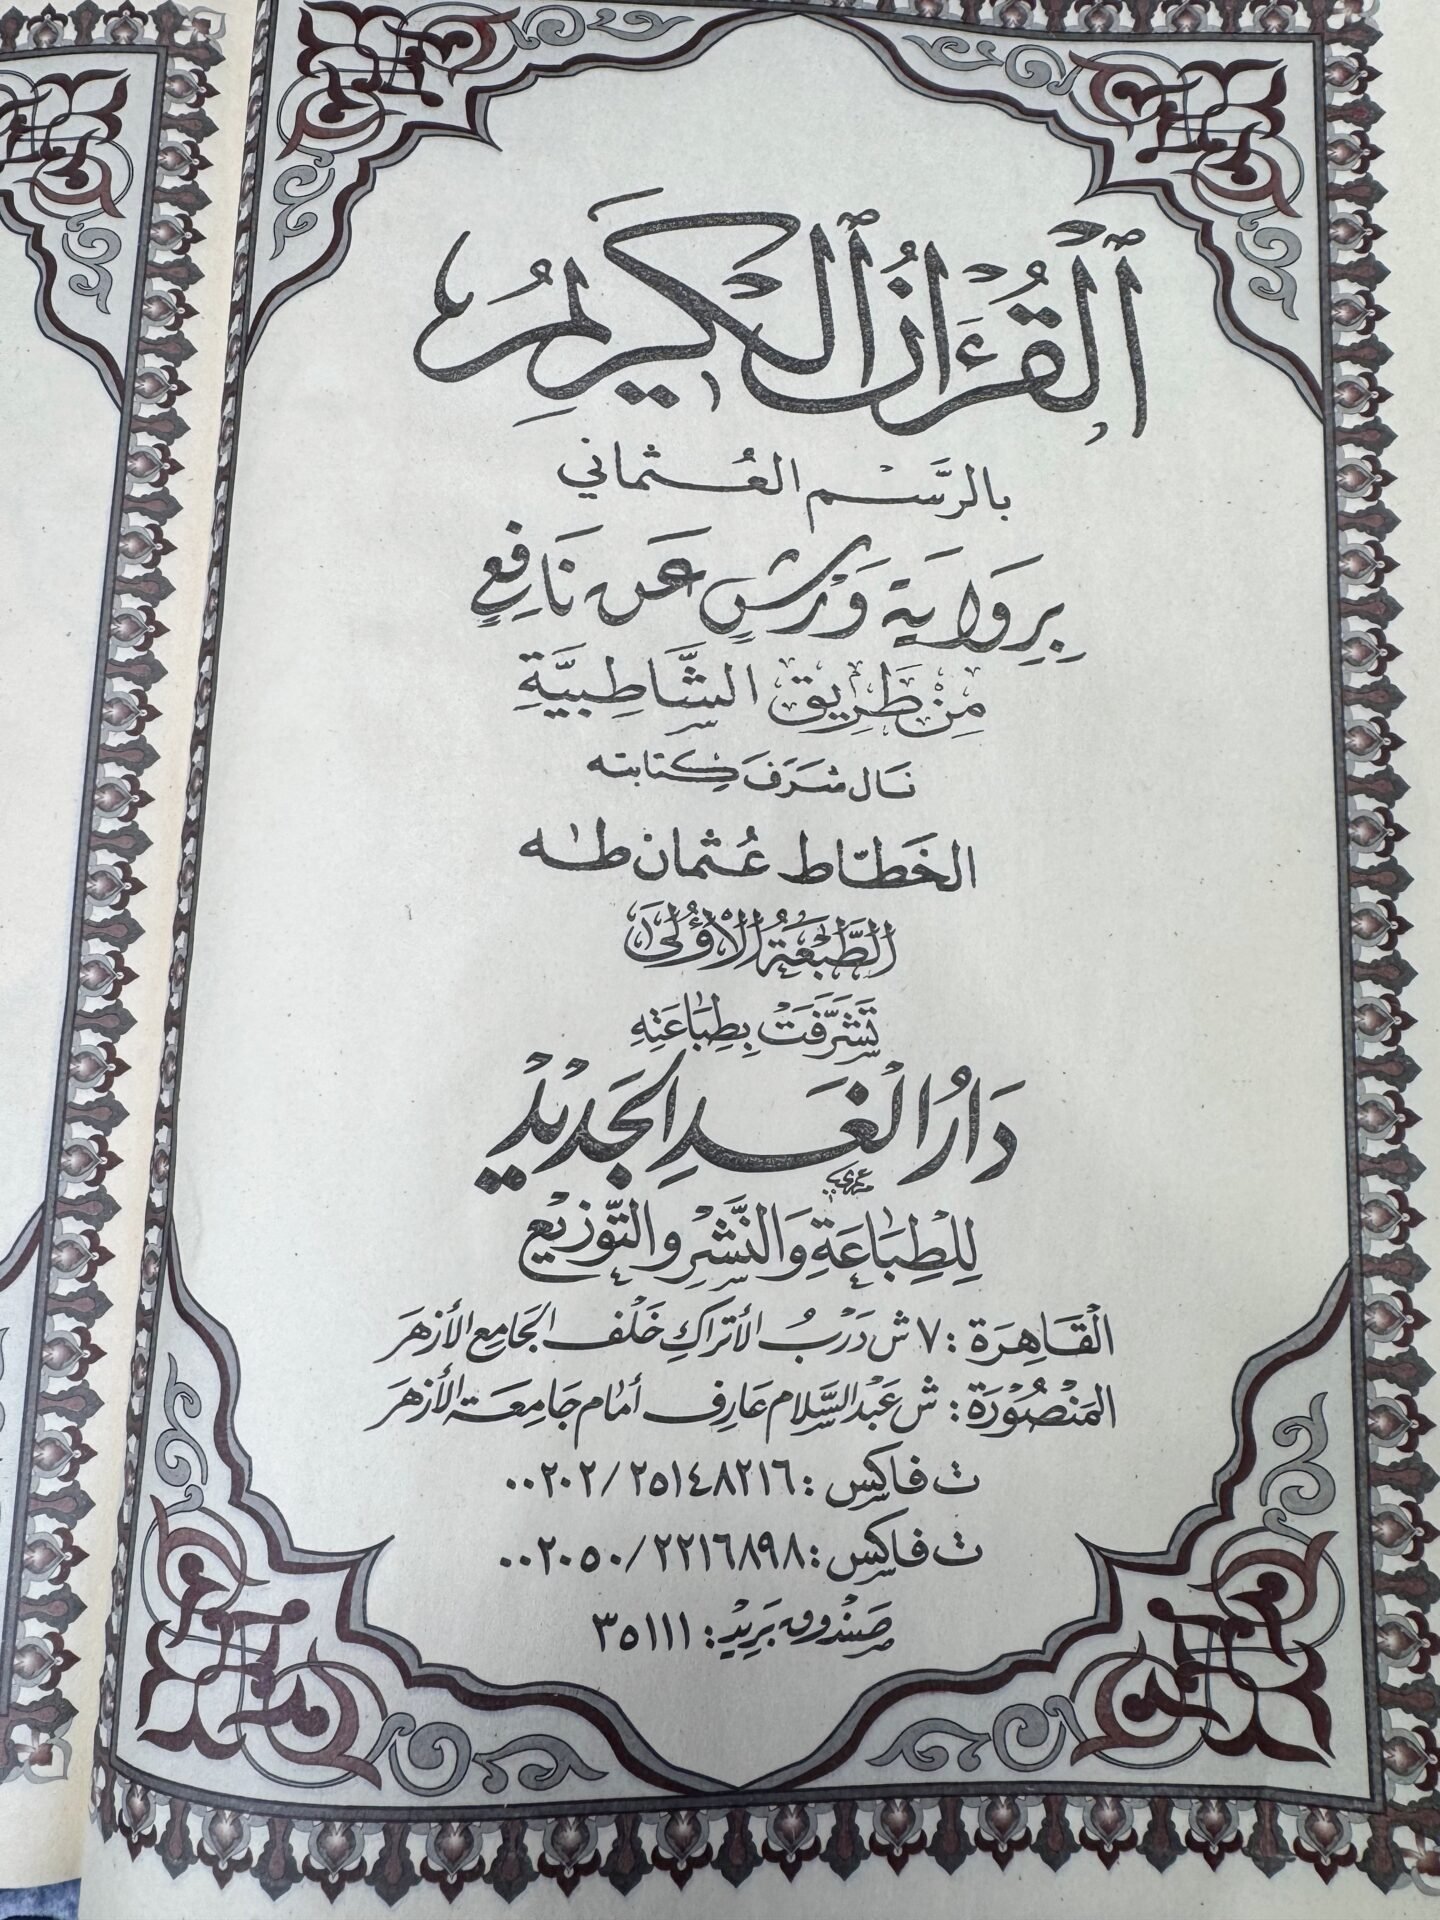 ٱلْقُرْءَانُ ٱلْكَرِيمُ
بالرَّسْم العُثماني
بِرِوَايَة وَرْشٍ عَن نَافِعٍ
مِنْ طَرِيقِ الشَّاطِبيَّةِ
نَال شَرَفَ كِتابته
الخَطّاط عُثمان طٰه
الطَّبْعَةُ الْأُولَىٰ
تَشَرَّفَتْ بِطِبَاعَتِهِ
دَارُ الْغَدِ الْجَدِيدْ
لِلْطِبَاعَةِ وَالنَّشْرِ وَالتَّوْزِيْع
الْقَاهِرَة : ٧ ش دَرْبُ الأَتراكِ خَلْف الْجَامِع الأَزهَر
المَنْصُوْرَة : ش عَبْد السَّلَام عَارِف أمَام جَامِعَة الأَزهَر
ت فاكس : ٠٠٢٠٢/٢٥١٤٨٢١٦
ت فاكس : ٠٠٢٠٥٠/٢٢١٦٨٩٨
صَنْدُوق بَرِيْد : ٣٥١١١